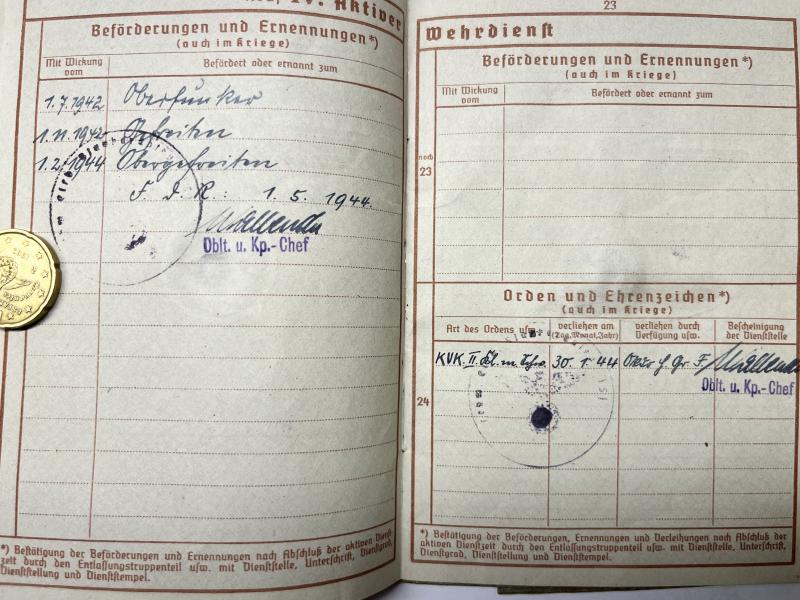 IV. Aktiver
Beförderungen und Ernennungen*)
(auch im Kriege)
Mit Wirkung vom
Befördert oder ernannt zum
1.7.1942 Oberfunker
1.11.1942 Gefreiten
1.2.1944 Obergefreiten
F. d. R.: 1.5.1944.
Oblt. u. Kp.-Chef
*) Bestätigung der Beförderungen und Ernennungen nach Abschluß der aktiven Dienst-
zeit durch den Entlassungstruppenteil usw. mit Dienststelle, Unterschrift, Dienstgrad,
Dienststellung und Dienststempel.
23
Wehrdienst
Beförderungen und Ernennungen*)
(auch im Kriege)
Mit Wirkung vom
Befördert oder ernannt zum
noch
23
Orden und Ehrenzeichen*)
(auch im Kriege)
Art des Ordens usw.
verliehen am
(Tag, Monat, Jahr)
verliehen durch
Verfügung usw.
Bescheinigung
der Dienststelle
KVK. II. Kl. m. Schw. 30.1.44 H. Gr. F
Oblt. u. Kp.-Chef
24
*) Bestätigung der Beförderungen, Ernennungen und Verleihungen nach Abschluß der
aktiven Dienstzeit durch den Entlassungstruppenteil usw. mit Dienststelle, Unterschrift,
Dienstgrad, Dienststellung und Dienststempel.